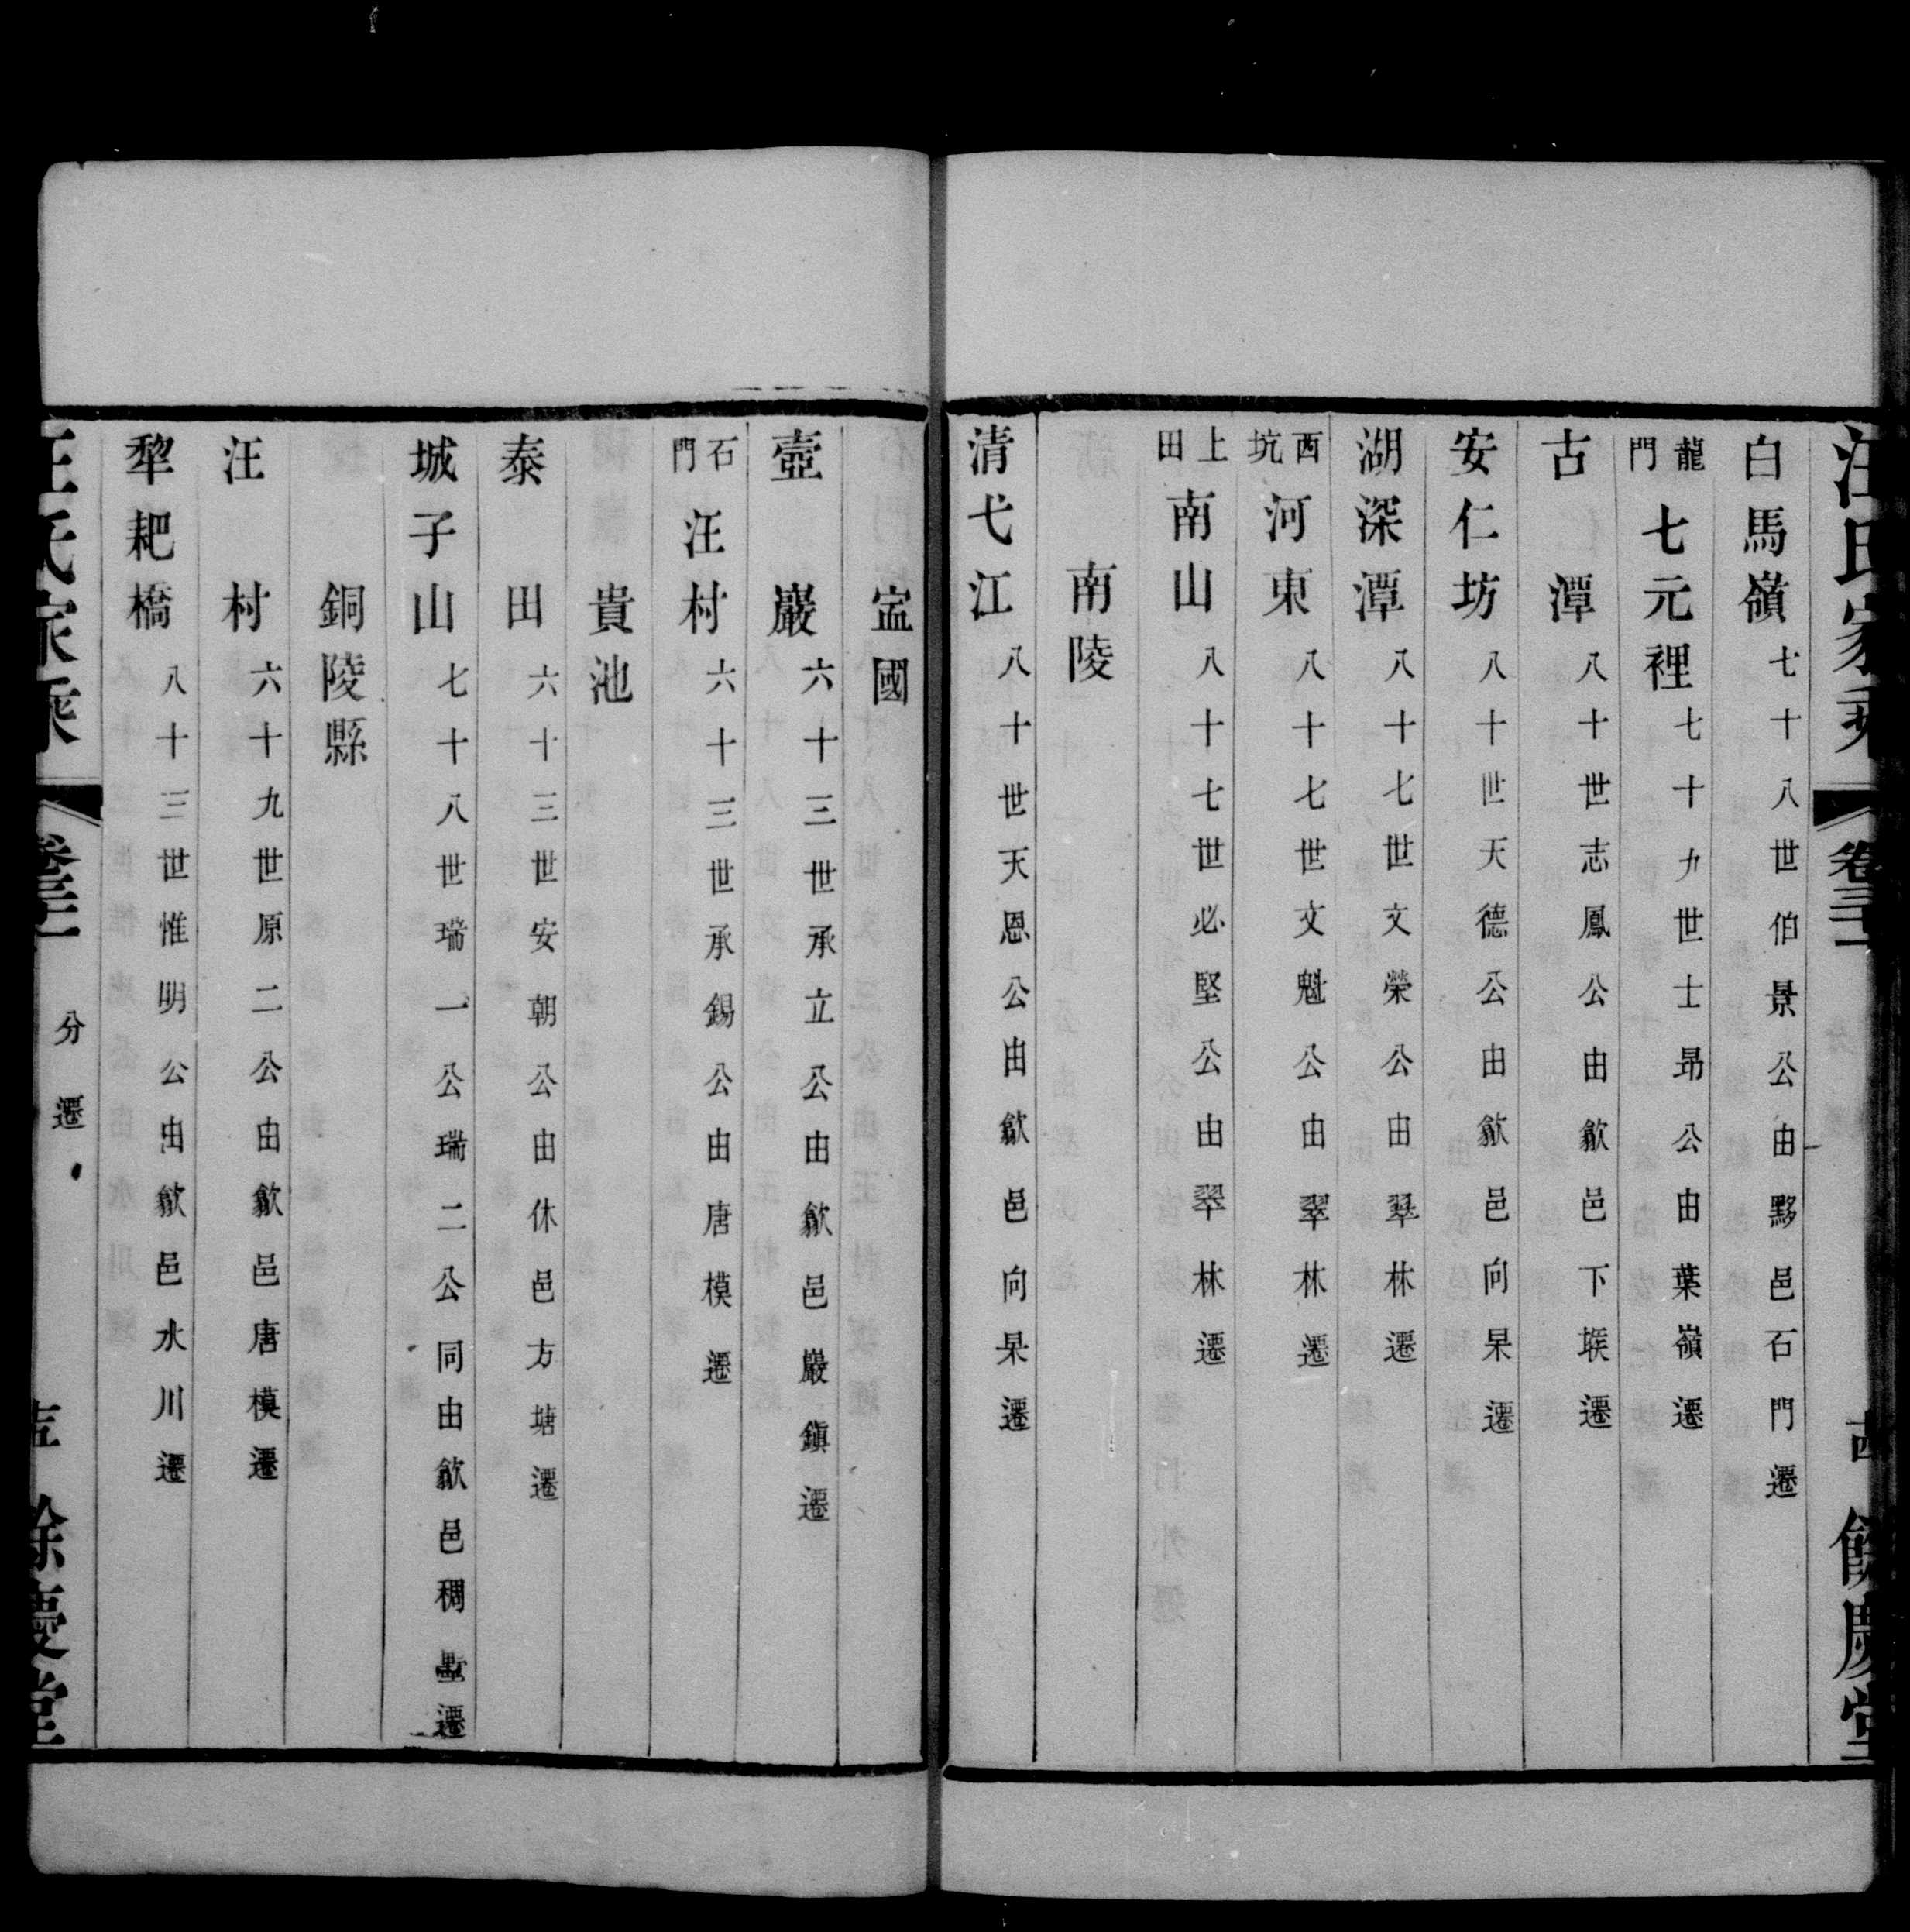 汪氏家乘 卷三 十四 餘慶堂
白馬嶺 七十八世伯景公由黟邑石門遷
龍門 七元裡 七十九世士昂公由葉嶺遷
古潭 八十世志鳳公由歙邑下堠遷
安仁坊 八十世天德公由歙邑向杲遷
湖深潭 八十七世文榮公由翠林遷
西坑 河東 八十七世文魁公由翠林遷
上田 南山 八十七世必堅公由翠林遷
南陵
清弋江 八十世天恩公由歙邑向杲遷
寍國
壺巖 六十三世承立公由歙邑巖鎭遷
石門 汪村 六十三世承錫公由唐模遷
貴池
泰田 六十三世安朝公由休邑方塘遷
城子山 七十八世瑞一公瑞二公同由歙邑稠墅遷
銅陵縣
汪村 六十九世原二公由歙邑唐模遷
犂耙橋 八十三世惟明公由歙邑水川遷
汪氏家乘 分遷 餘慶堂